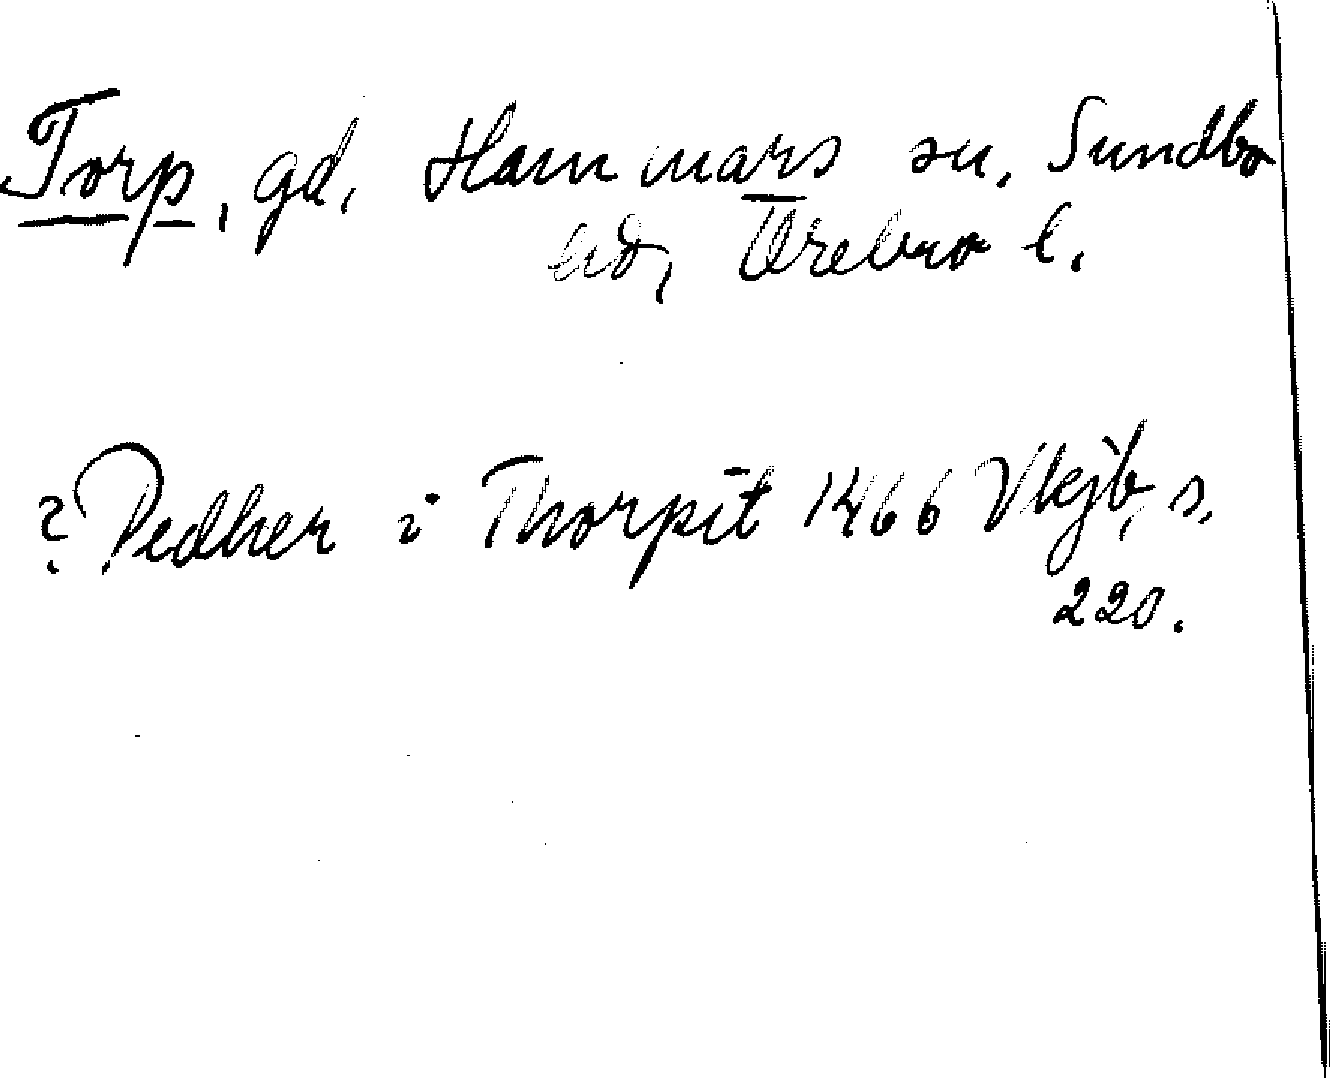 Torp, gd, Hammars sn, Sundbo
hd, Örebro l.
? Pedher i Thorpit 1466 Vkjb, s.
220.